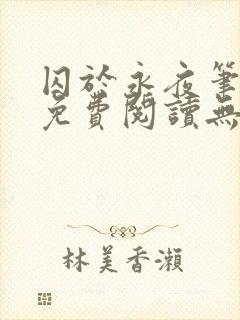 囚於永夜筆
免費閱讀無
林美香瀨